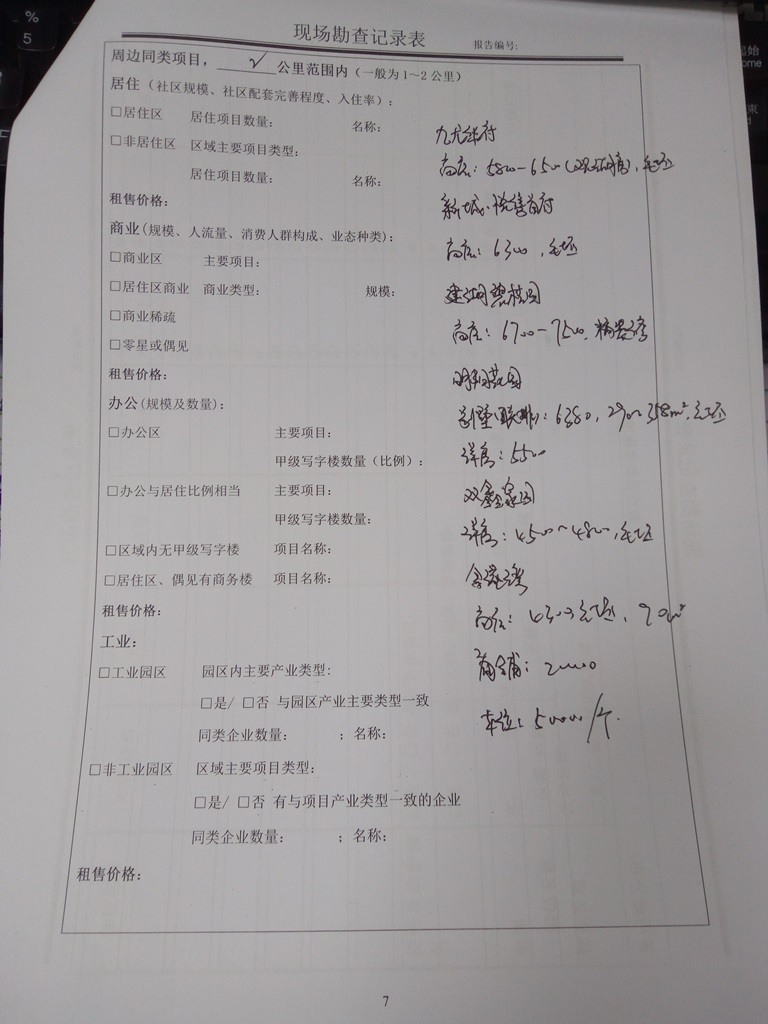 %
5
现场勘查记录表 报告编号:
周边同类项目，√公里范围内（一般为1～2公里）
居住（社区规模、社区配套完善程度、入住率）:
□居住区 居住项目数量: 名称:
九龙华府
□非居住区 区域主要项目类型:
高层: 5800-6500 毛坯
居住项目数量: 名称:
租售价格:
新城·悦隽首府
商业(规模、人流量、消费人群构成、业态种类):
高层: 6300，毛坯
□商业区 主要项目:
□居住区商业 商业类型: 规模:
建湖碧桂园
□商业稀疏
高层: 6700-7500.
□零星或偶见
租售价格:
花园
办公(规模及数量):
别墅(联排): 6380, 358m². 毛坯
□办公区 主要项目:
甲级写字楼数量（比例）:
洋房: 5500
□办公与居住比例相当 主要项目:
双鑫家园
甲级写字楼数量:
洋房: 4500～4800, 毛坯
□区域内无甲级写字楼 项目名称:
□居住区、偶见有商务楼 项目名称:
租售价格:
高层: 6300 毛坯, 90m²
工业:
□工业园区 园区内主要产业类型:
商铺: 20000
□是/ □否 与园区产业主要类型一致
车位: 50000/个.
同类企业数量: ; 名称:
□非工业园区 区域主要项目类型:
□是/ □否 有与项目产业类型一致的企业
同类企业数量: ; 名称:
租售价格:
7